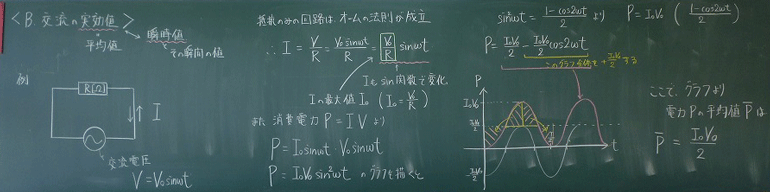 <B. 交流の実効値>
瞬時値
平均値
その瞬間の値
例
R[Ω]
I
交流電圧
V=V₀sinωt
抵抗のみの回路は、オームの法則が成立
∴ I = V/R = V₀sinωt/R = V₀/R sinωt
Iもsin関数で変化。
Iの最大値 I₀ (I₀ = V₀/R)
また、消費電力 P = IV より
P = I₀sinωt・V₀sinωt
P = I₀V₀ sin²ωt のグラフを描くと
sin²ωt = (1-cos2ωt)/2 より P = I₀V₀ ((1-cos2ωt)/2)
P = I₀V₀/2 - I₀V₀/2 cos2ωt
P
I₀V₀
I₀V₀/2
t
ここで、グラフより
電力Pの平均値P̄は
P̄ = I₀V₀/2